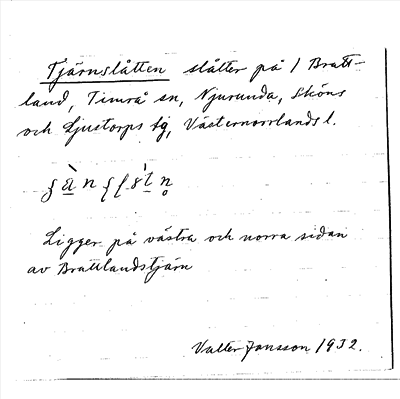 Tjärnslåtten slåtter på 1 Bratt-
land, Timrå sn, Njurunda, Sköns
och Ljustorps tg, Västernorrlands l.
Ligger på västra och norra sidan
av Brattlandstjärn
Valter Jansson 1932.